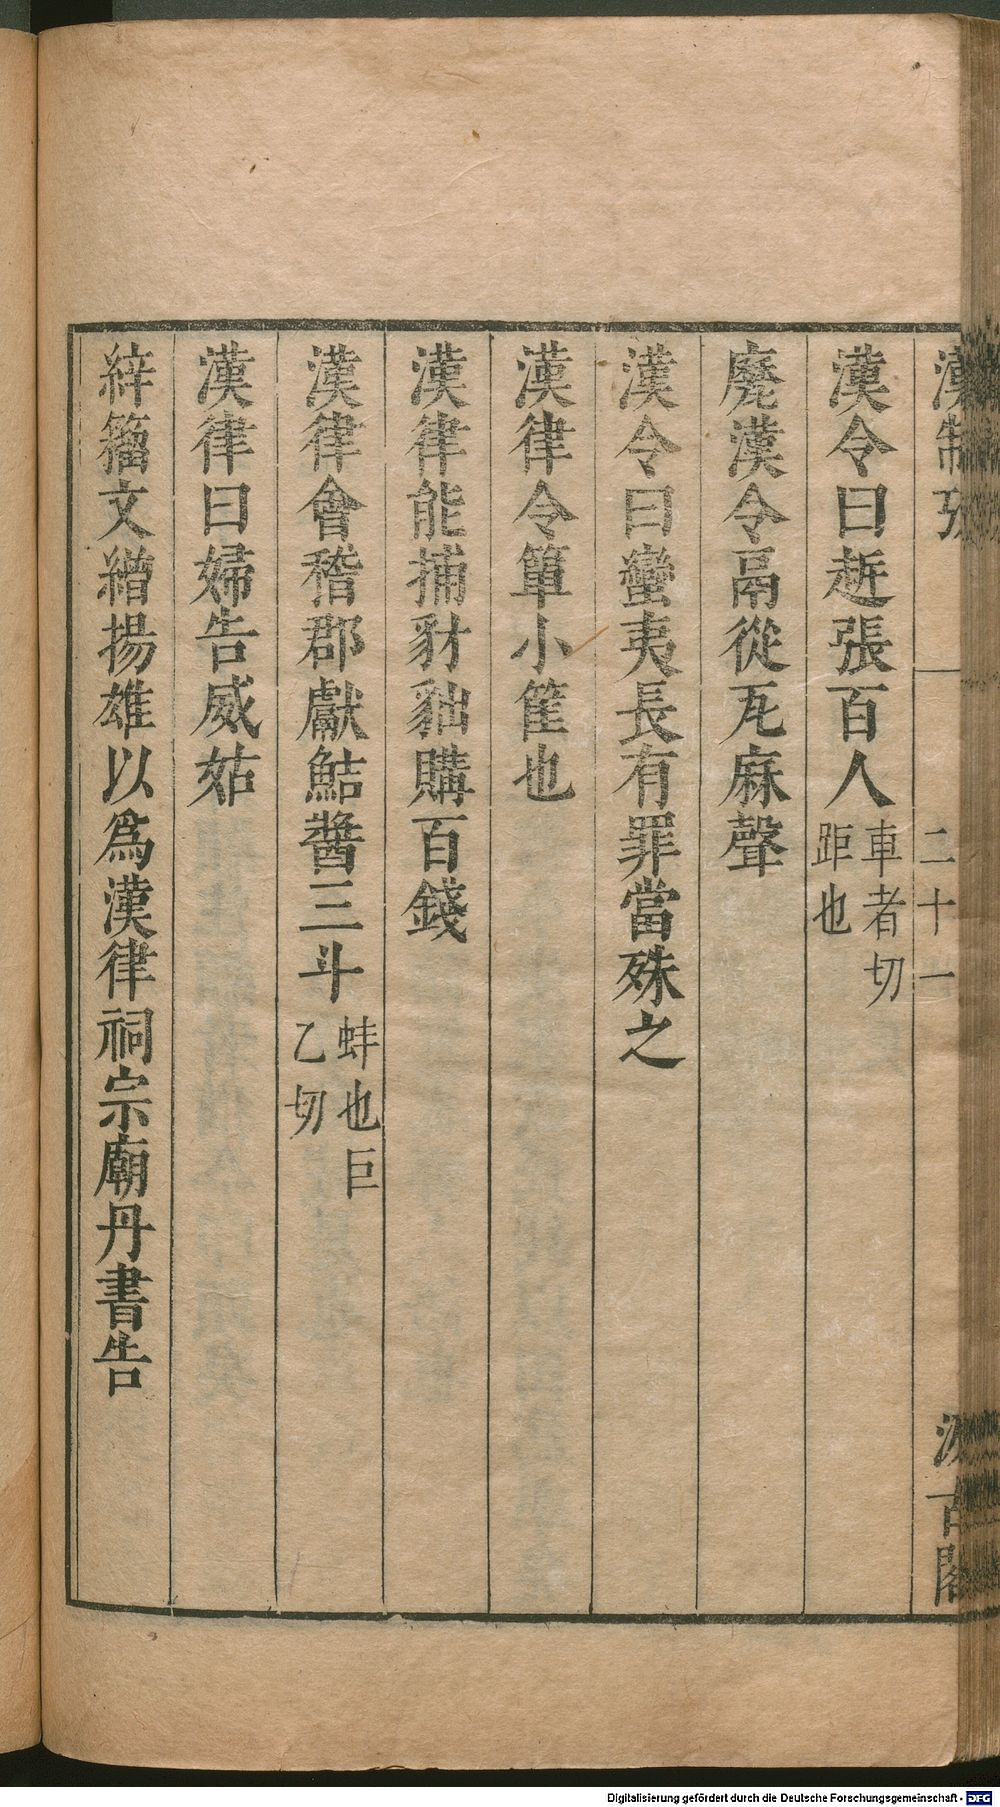 漢制攷 二十一 汲古閣
漢令曰趀張百人車者切
距也
㽁漢令鬲從瓦麻聲
漢令曰蠻夷長有罪當殊之
漢律令簞小筐也
漢律能捕豺貀購百錢
漢律會稽郡獻鮚醬三斗蚌也巨
乙切
漢律曰婦告威姑
縡籀文繒揚雄以爲漢律祠宗廟丹書告
Digitalisierung gefördert durch die Deutsche Forschungsgemeinschaft - DFG